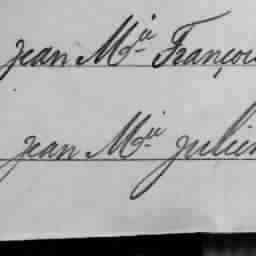 Jean Mie Françoi
Jean Mie Julien